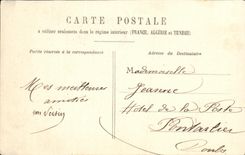 CARTE POSTALE
a utiliser seulement dans le régime intérieur (FRANCE, ALGÉRIE et TUNISIE)
Partie réservée à la correspondance
Adresse du Destinataire
Mes meilleures
amitiés
Mademoiselle
Jeanne
Hôtel de la Poste
Pontarlier
Doubs